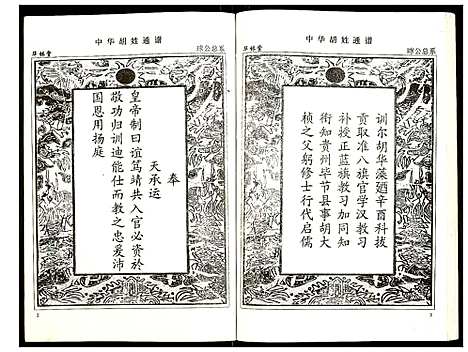 中华胡姓通谱
草根堂
嫁公总系
奉
天承运
皇帝制曰谊笃靖共入官必资於
敬功归训迪能仕而教之忠爰沛
国恩用扬庭
训尔胡华蓤廼辛酉科拔
贡取准八旗官学汉教习
补授正蓝旗教习加同知
衔知贵州毕节县事胡大
桢之父躬修士行代启儒
中华胡姓通谱
草根堂
嫁公总系